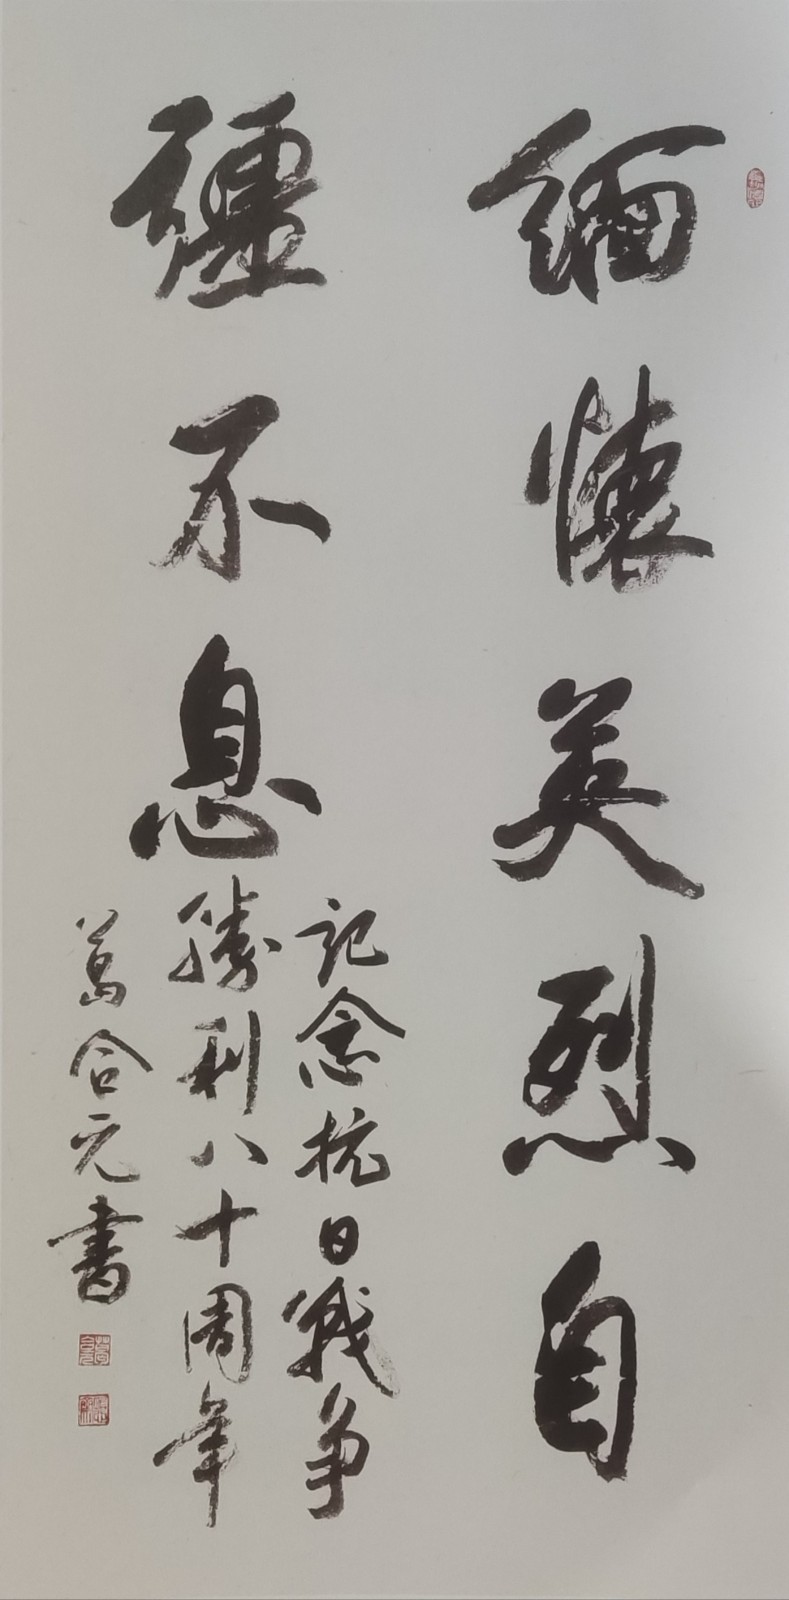 缅懷英烈自
彊不息
記念抗日戰争
勝利八十周年
葛合元書